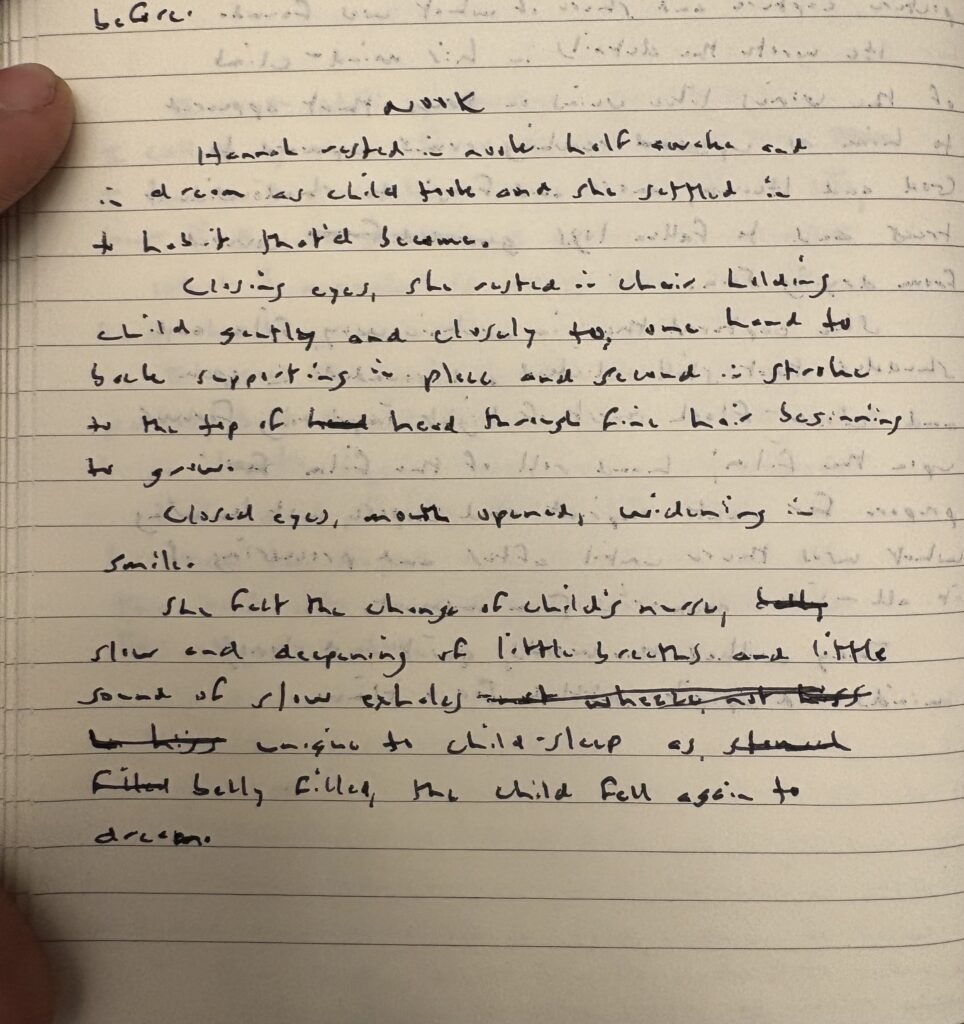 before.
NOOK
Hannah rested in nook half-awake and
in dream as child took and she settled in
to habit that'd become.
Closing eyes, she rested in chair holding
child gently and closely to, one hand to
back supporting in place and second in stroke
to the top of head head through fine hair beginning
to grow.
Closed eyes, mouth opened, widening in
smile.
She felt the change of child's nurse, belly
slow and deepening of little breaths and little
sound of slow exhales not wheeze, not hiss
unique to child-sleep as stomach
filled belly filled, the child fell again to
dream.